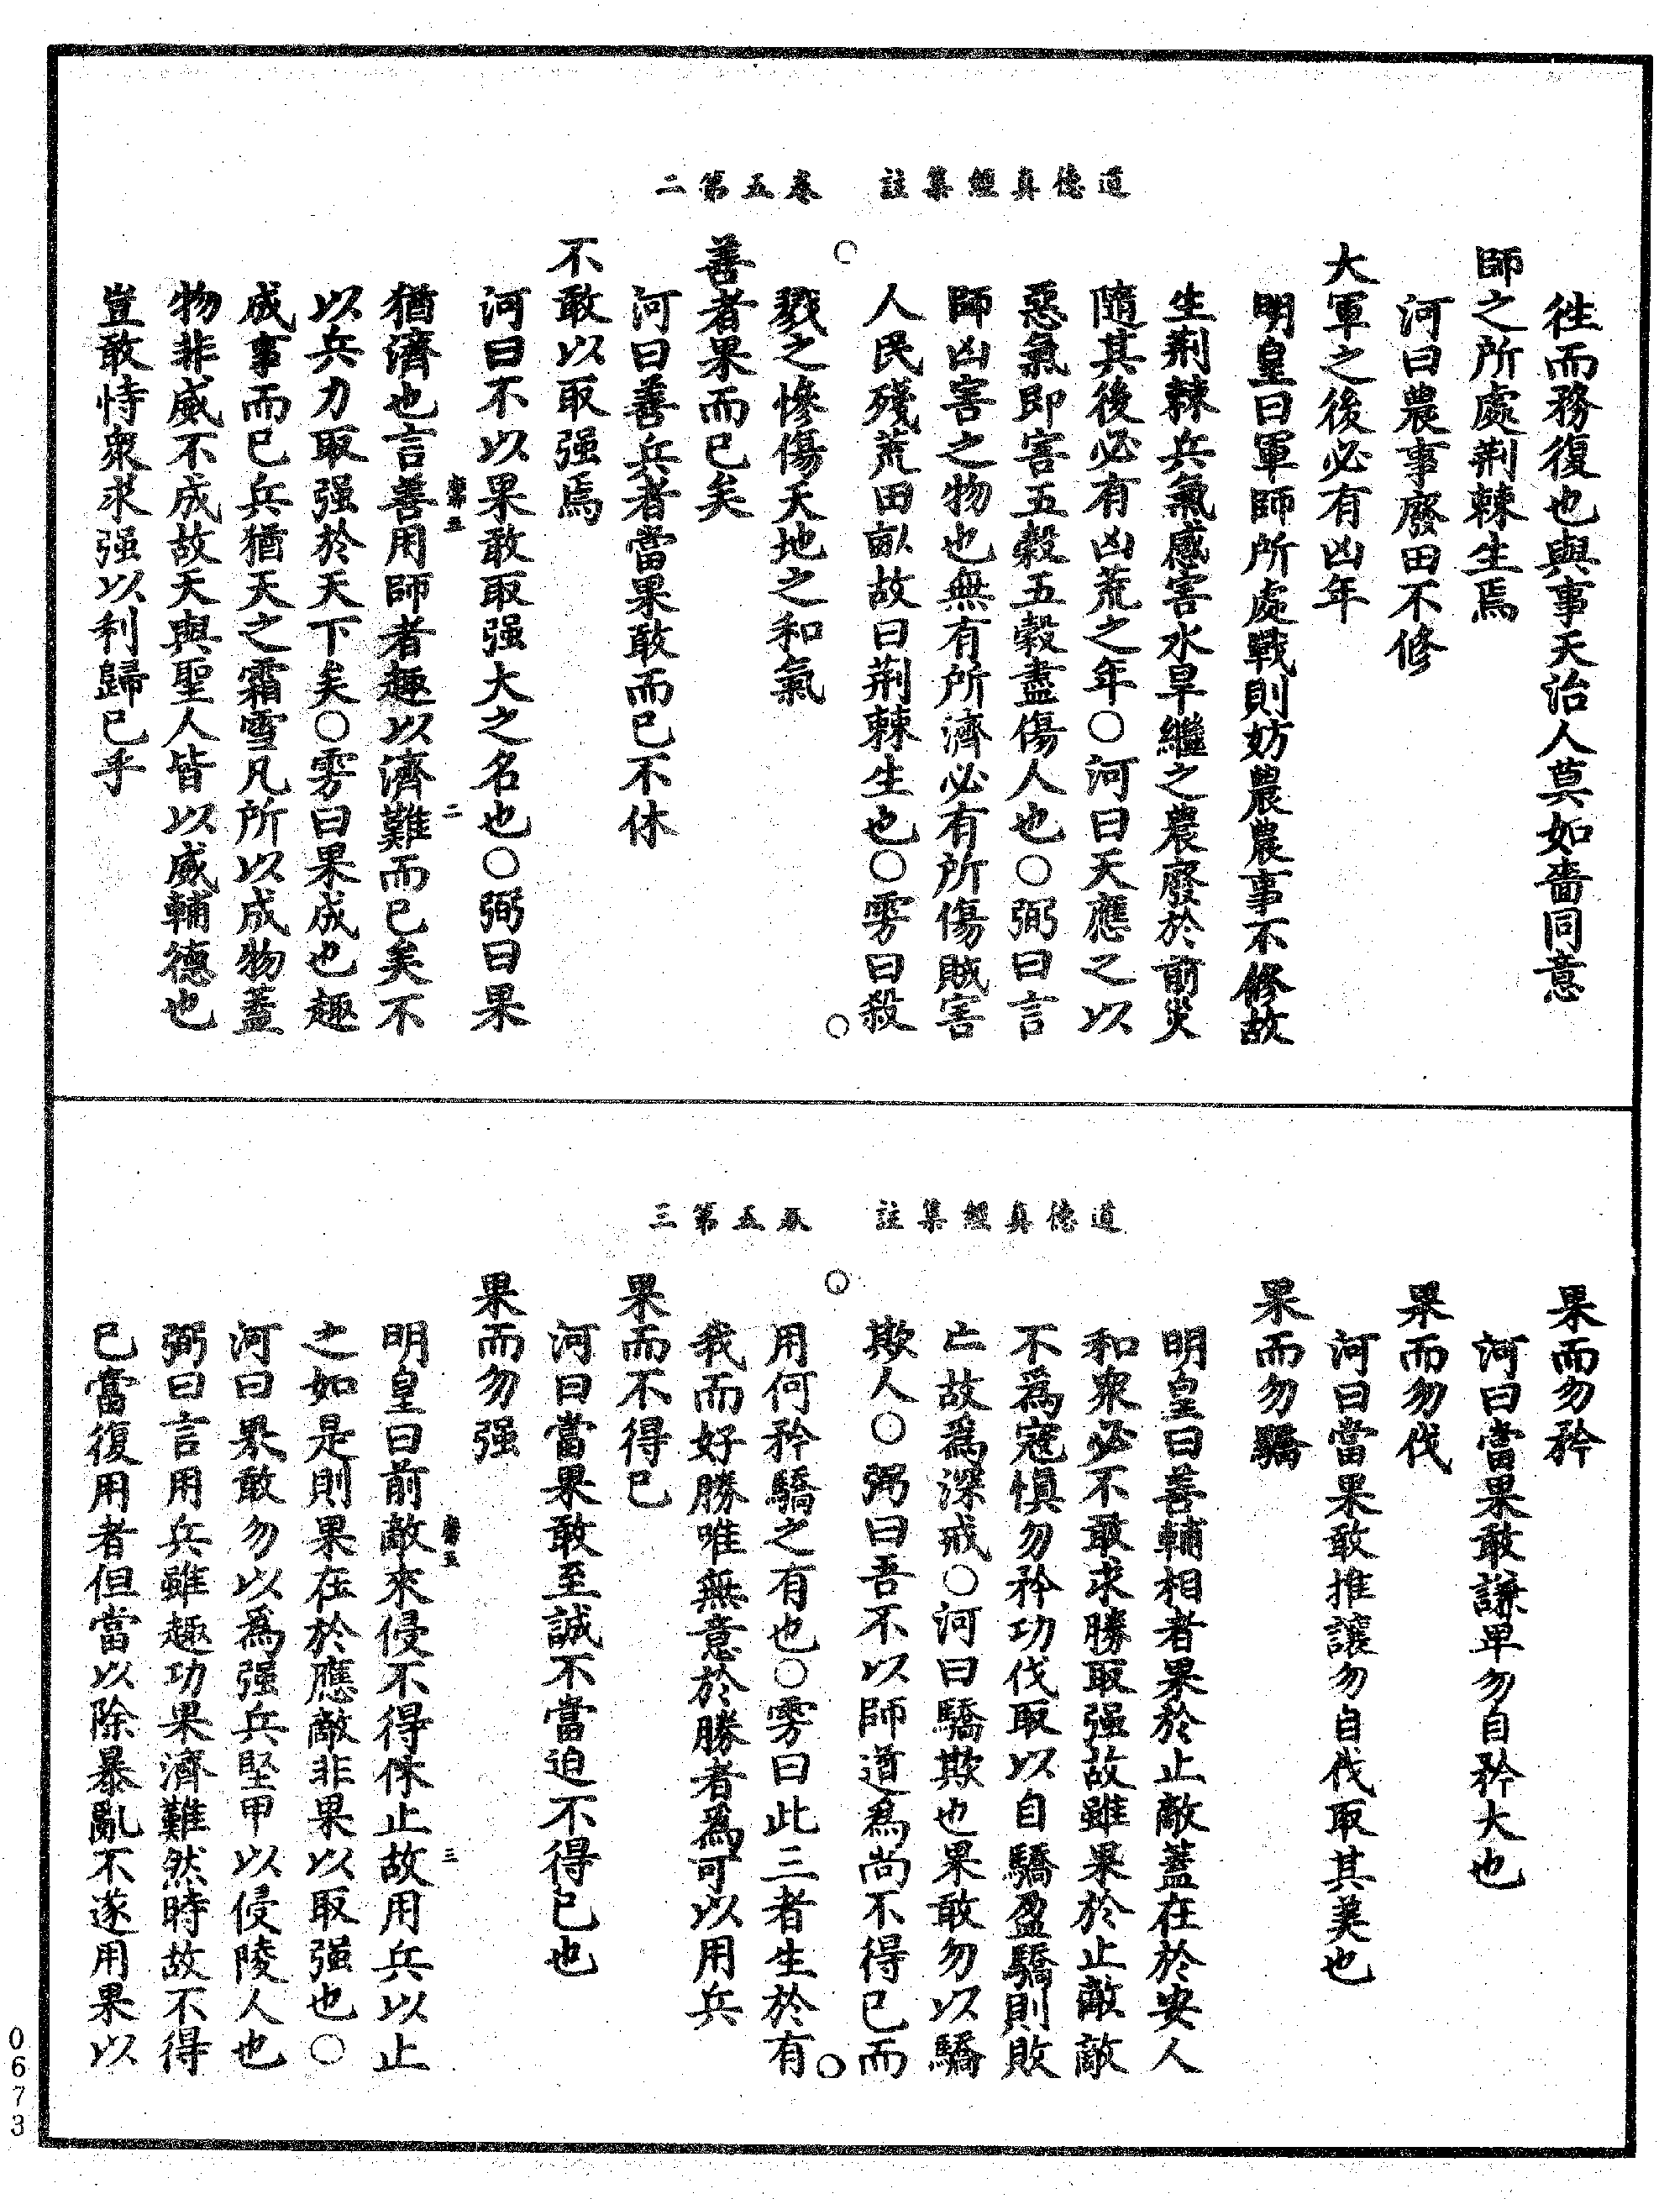 道德真經集註　卷五第二
往而務復也與事天治人莫如嗇同意
師之所處荆棘生焉
河曰農事廢田不修
大軍之後必有凶年
明皇曰軍師所處戰則妨農農事不修故
生荆棘兵氣感害水旱繼之農廢於前災
隨其後必有凶荒之年〇河曰天應之以
惡氣即害五穀五穀盡傷人也〇弼曰言
師凶害之物也無有所濟必有所傷賊害
人民殘荒田畝故曰荆棘生也〇雱曰殺
戮之慘傷天地之和氣
善者果而已矣
河曰善兵者當果敢而已不休
不敢以取强焉
河曰不以果敢取强大之名也〇弼曰果
猶濟也言善用師者趣以濟難而已矣不
以兵力取强於天下矣〇雱曰果成也趣
成事而已兵猶天之霜雪凡所以成物蓋
物非威不成故天與聖人皆以威輔德也
豈敢恃衆求强以利歸已乎
二
道德真經集註　卷五第三
果而勿矜
河曰當果敢謙卑勿自矜大也
果而勿伐
河曰當果敢推讓勿自伐取其美也
果而勿驕
明皇曰善輔相者果於止敵蓋在於安人
和衆必不敢求勝取强故雖果於止敵敵
不爲寇慎勿矜功伐取以自驕盈驕則敗
亡故爲深戒〇河曰驕欺也果敢勿以驕
欺人〇弼曰吾不以師道爲尚不得已而
用何矜驕之有也〇雱曰此三者生於有
我而好勝唯無意於勝者爲可以用兵
果而不得已
河曰當果敢至誠不當迫不得已也
果而勿强
明皇曰前敵來侵不得休止故用兵以止
之如是則果在於應敵非果以取强也〇
河曰果敢勿以爲强兵堅甲以侵陵人也
弼曰言用兵雖趣功果濟難然時故不得
已當復用者但當以除暴亂不遂用果以
三
0673